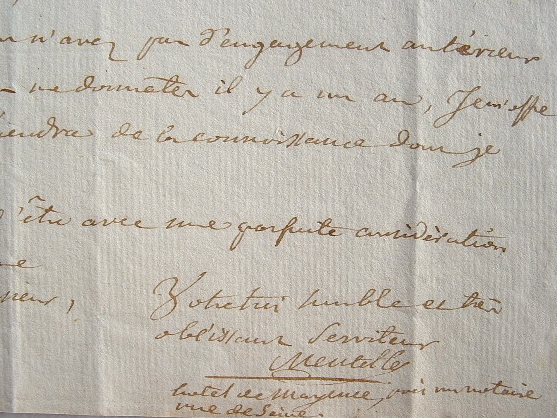 n'avez pas d'engagement antérieur
me donnates il y a un an, Je m'offre
de la connoissance dont je
d'être avec une parfaite considération
Votre très humble et très
obéissant Serviteur
Mentelle
hotel de Mayence, un notaire
rue de Seine.